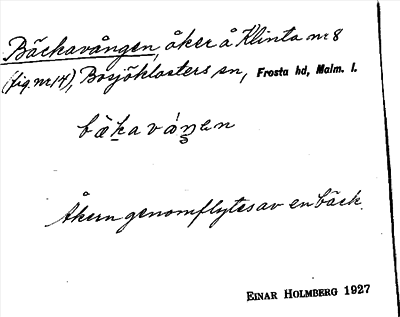 Bäckavången, åker å Klinta nr 8
(fig. nr 14), Bosjöklosters sn, Frosta hd, Malm. l.
Åkern genomflytes av en bäck.
EINAR HOLMBERG 1927